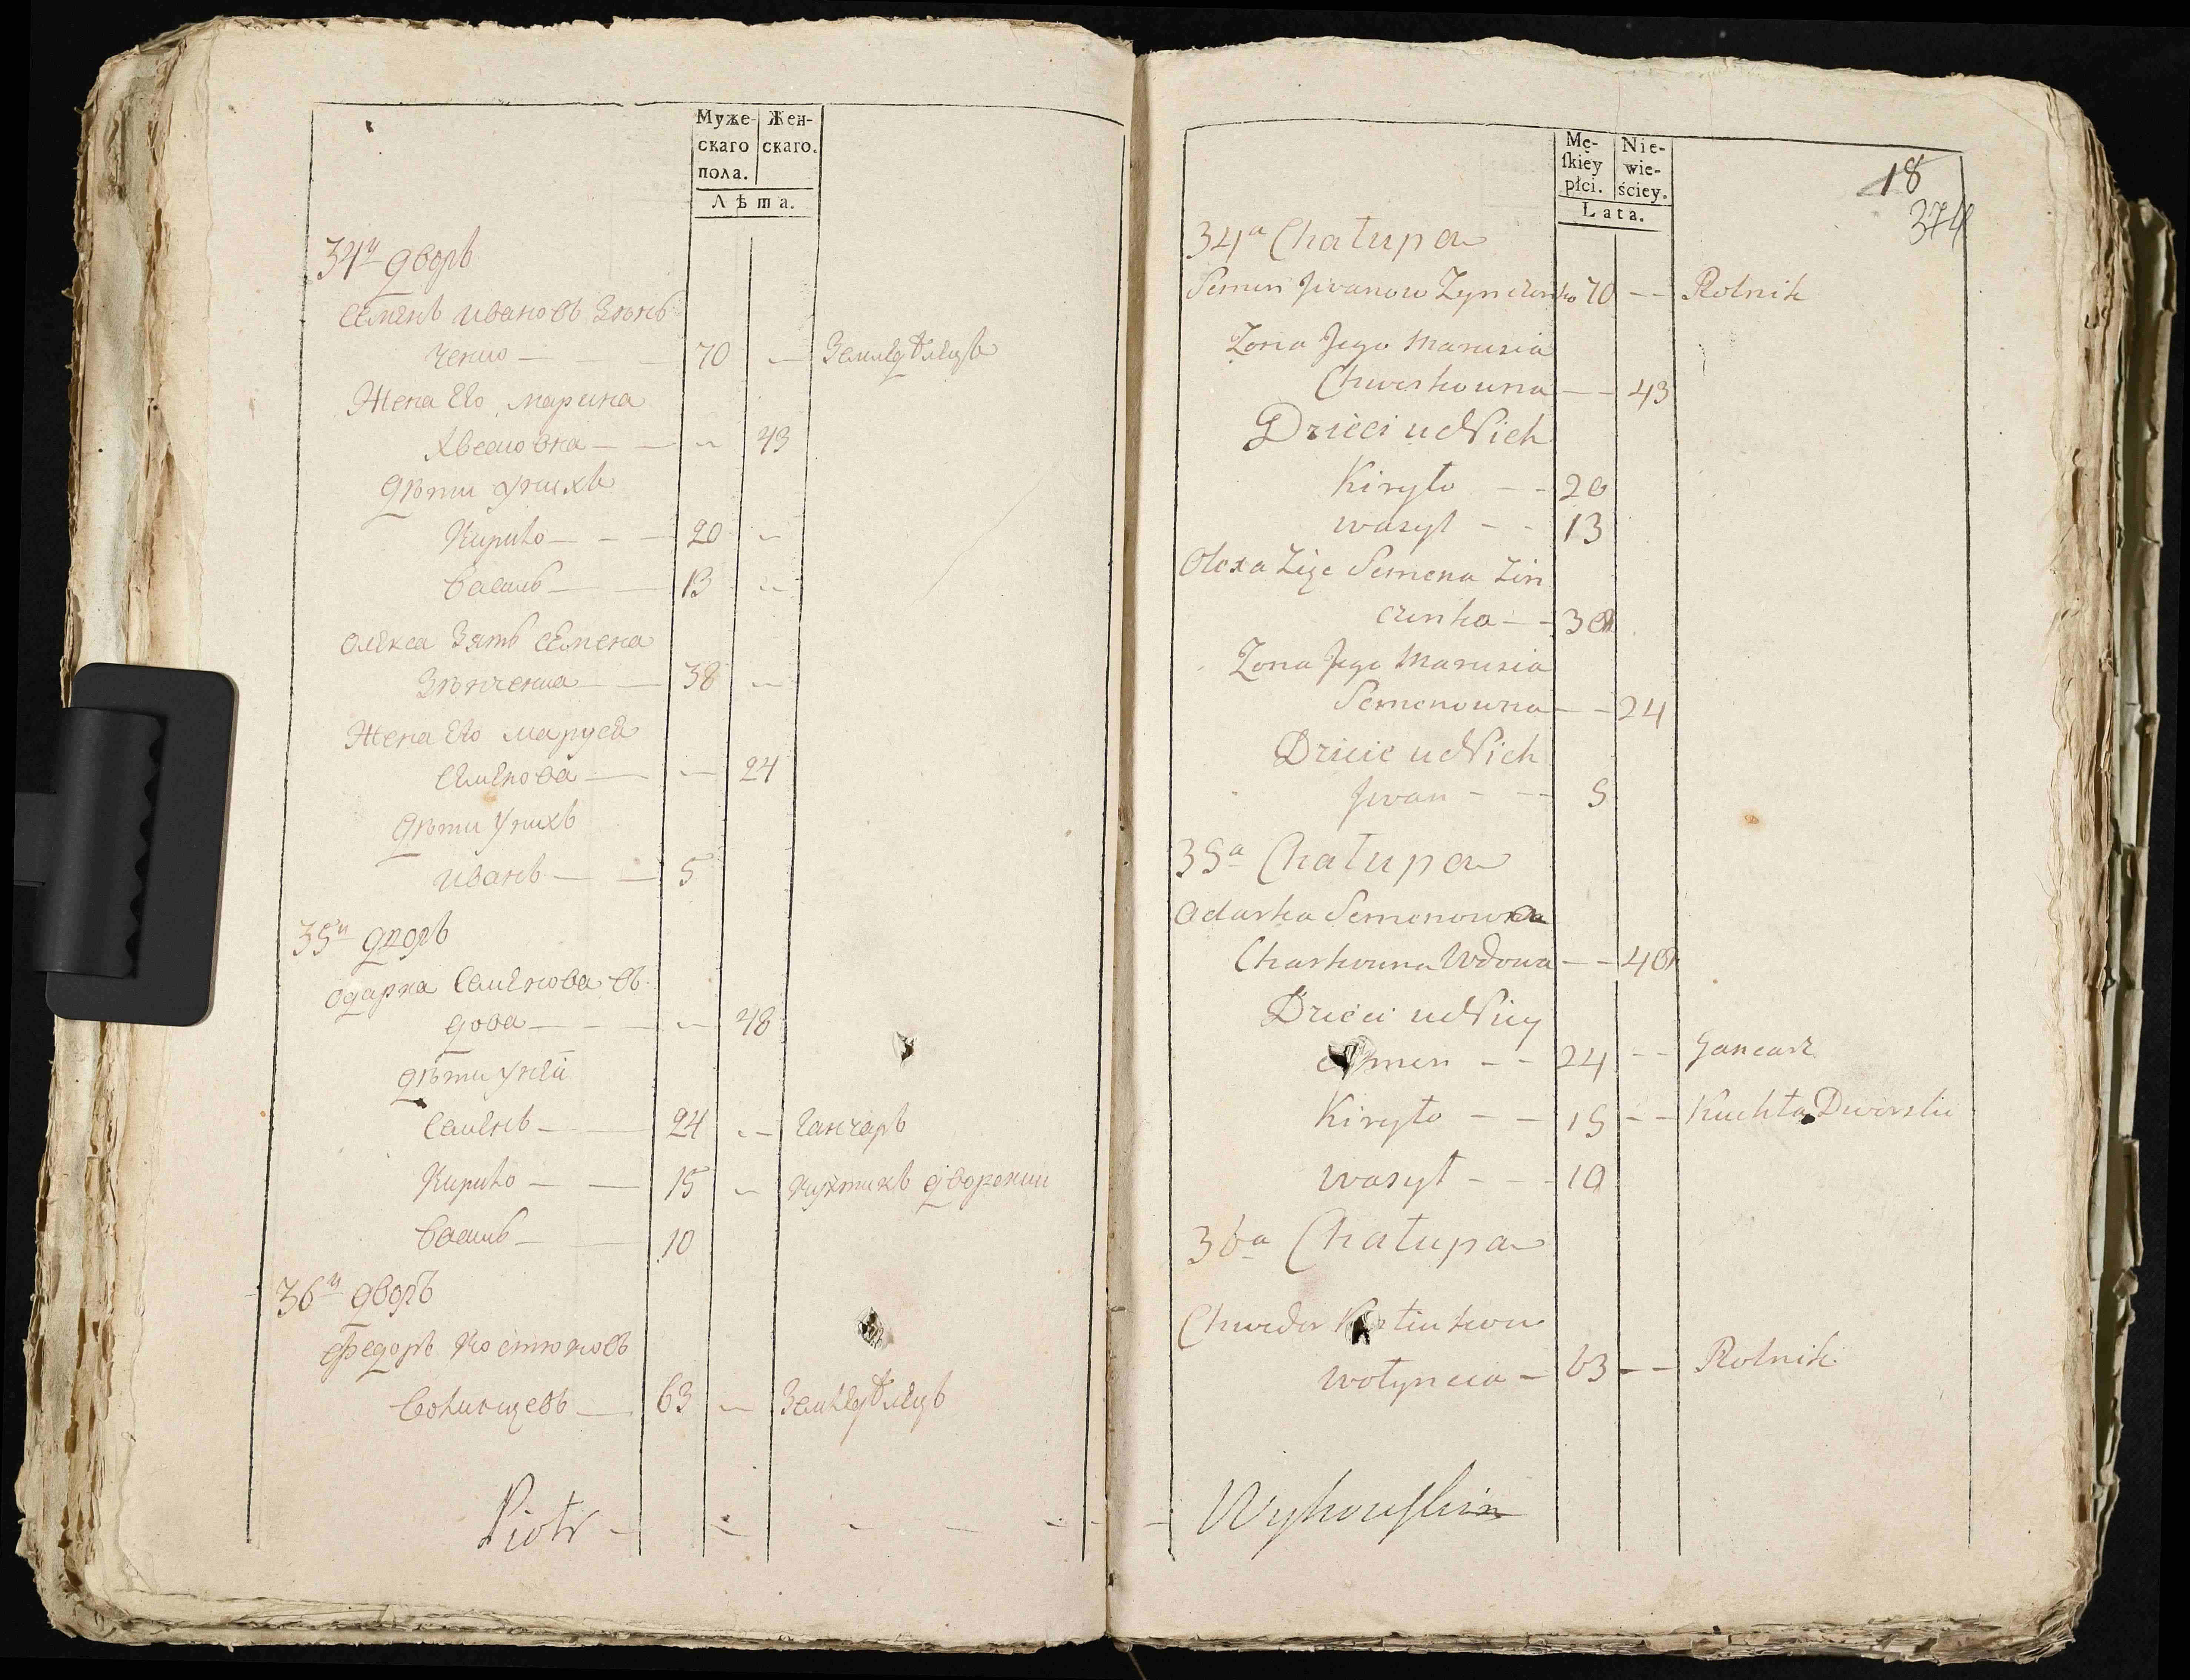 Муже- Жен-
скаго скаго.
пола.
Лѣта.
34й дворъ
Семенъ Ивановъ Зѣнь
ченко — 70 — Земледѣлецъ
Жена Его Марина
Хвесковна — — 43
Дѣти У нихъ
Кирило — — 20 —
Василь — — 13 —
Олекса Зять Семена
Зѣнченка — 38 —
Жена Его Маруся
Семенова — — 24
Дѣти У нихъ
Иванъ — — 5
35й дворъ
Одарка Семенова в
дова — — — 48
Дѣти У ней
Семенъ — 24 — Ганчаръ
Кирило — — 15 — Кухтикъ дворский
Василь — 10
36й дворъ
Федоръ Костюковъ
Волинцевъ — 63 — Земледѣлецъ
Piotr — — — — —
Mę- Nie-
ſkiey wie-
płci. ściey.
Lata.
18
374
34a Chałupa
Semen Jwanow Zynczenko 70 — — Rolnik
Zona Jego Marusia
Chweskowna — — 43
Dzieci u Nich
Kiryło — — 20
Wasyl — — 13
Olexa Zięc Semena Zin
czenka — — 38
Zona Jego Marusia
Semenowna — — 24
Dziecie u Nich
Jwan — — 5
35a Chałupa
Odarka Semenowna
Charkowna Wdowa — — 48
Dzieci u Niey
Semen — — 24 — — Gancarz
Kiryło — — 15 — — Kuchta Dworski
Wasyl — — 10
36a Chałupa
Chwedor Kostiukow
Wołyncia — 63 — — Rolnik
Wyhowſki